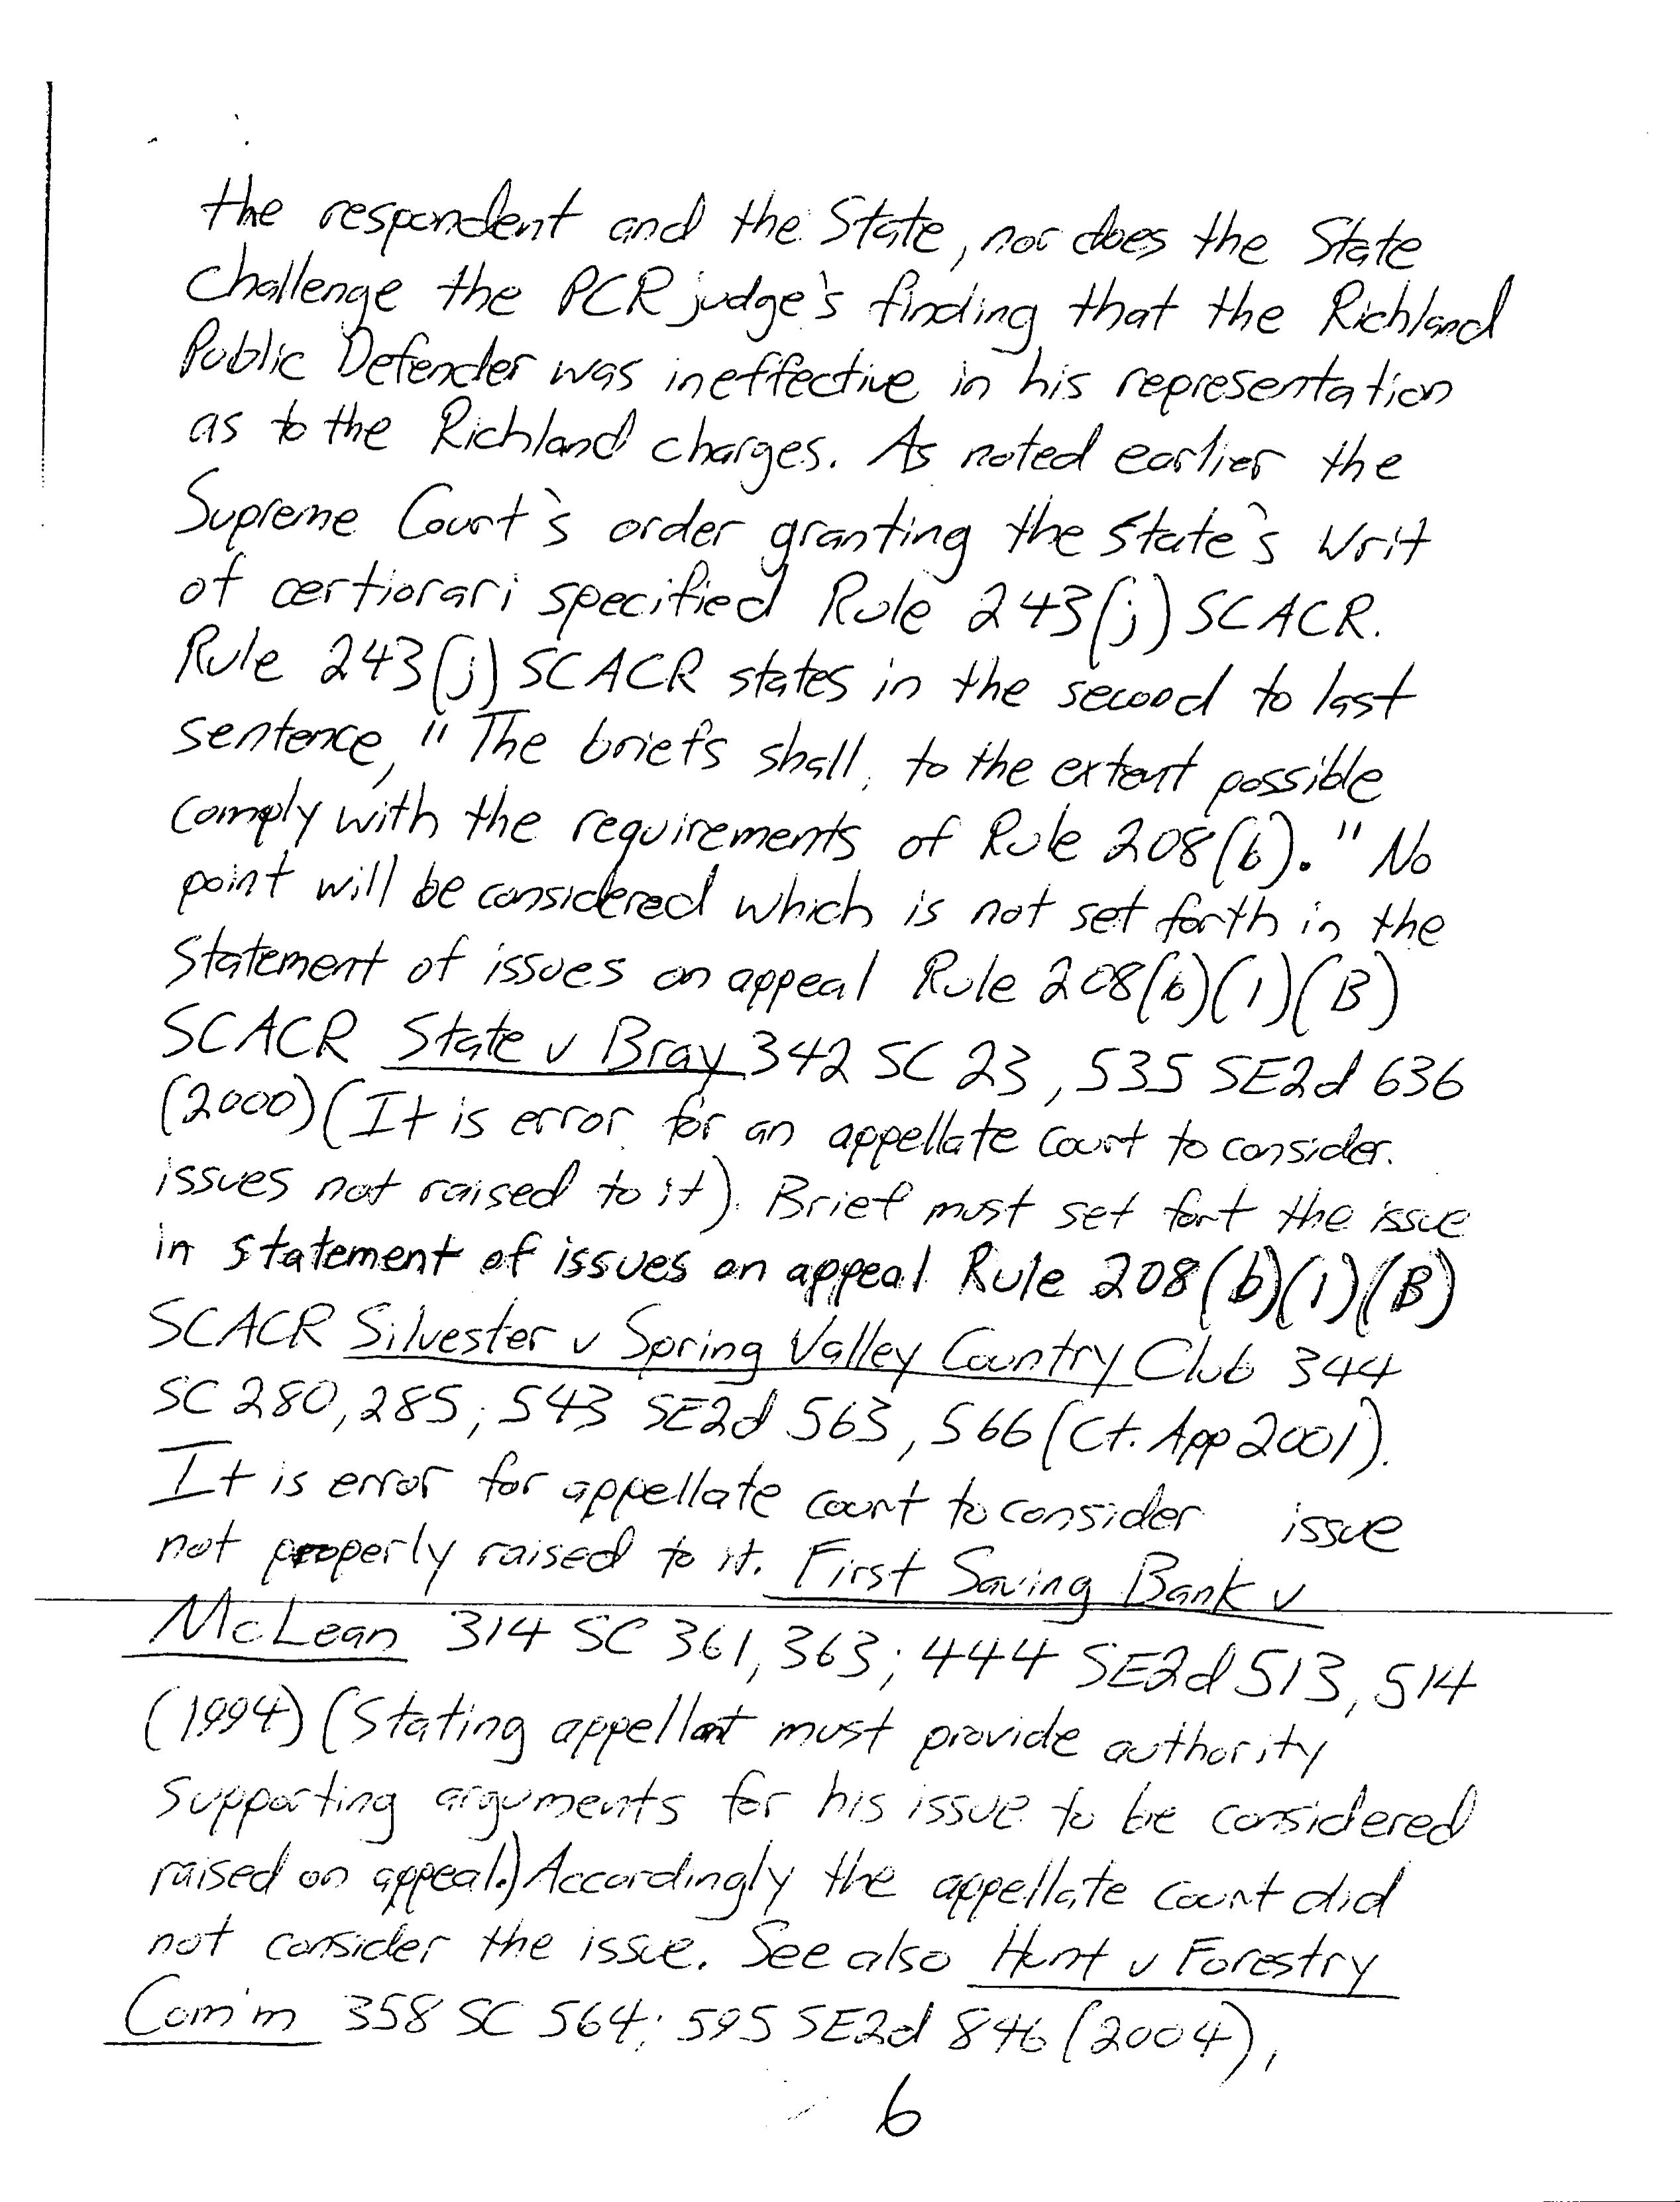 the respondent and the State, nor does the State
challenge the PCR judge's finding that the Richland
Public Defender was ineffective in his representation
as to the Richland charges. As noted earlier the
Supreme Court's order granting the State's Writ
of certiorari specified Rule 243(j) SCACR.
Rule 243(j) SCACR states in the second to last
sentence, "The briefs shall, to the extent possible
comply with the requirements of Rule 208(b)." No
point will be considered which is not set forth in the
Statement of issues on appeal Rule 208(b)(1)(B)
SCACR State v Bray 342 SC 23, 535 SE2d 636
(2000) (It is error for an appellate court to consider.
issues not raised to it). Brief must set fort the issue
in statement of issues on appeal Rule 208(b)(1)(B)
SCACR Silvester v Spring Valley Country Club 344
SC 280, 285; 543 SE2d 563, 566 (Ct. App 2001).
It is error for appellate court to consider issue
not properly raised to it. First Saving Bank v
McLean 314 SC 361, 363; 444 SE2d 513, 514
(1994) (Stating appellant must provide authority
supporting arguments for his issue to be considered
raised on appeal.) Accordingly the appellate court did
not consider the issue. See also Hunt v Forestry
Com'm 358 SC 564; 595 SE2d 846 (2004),
6